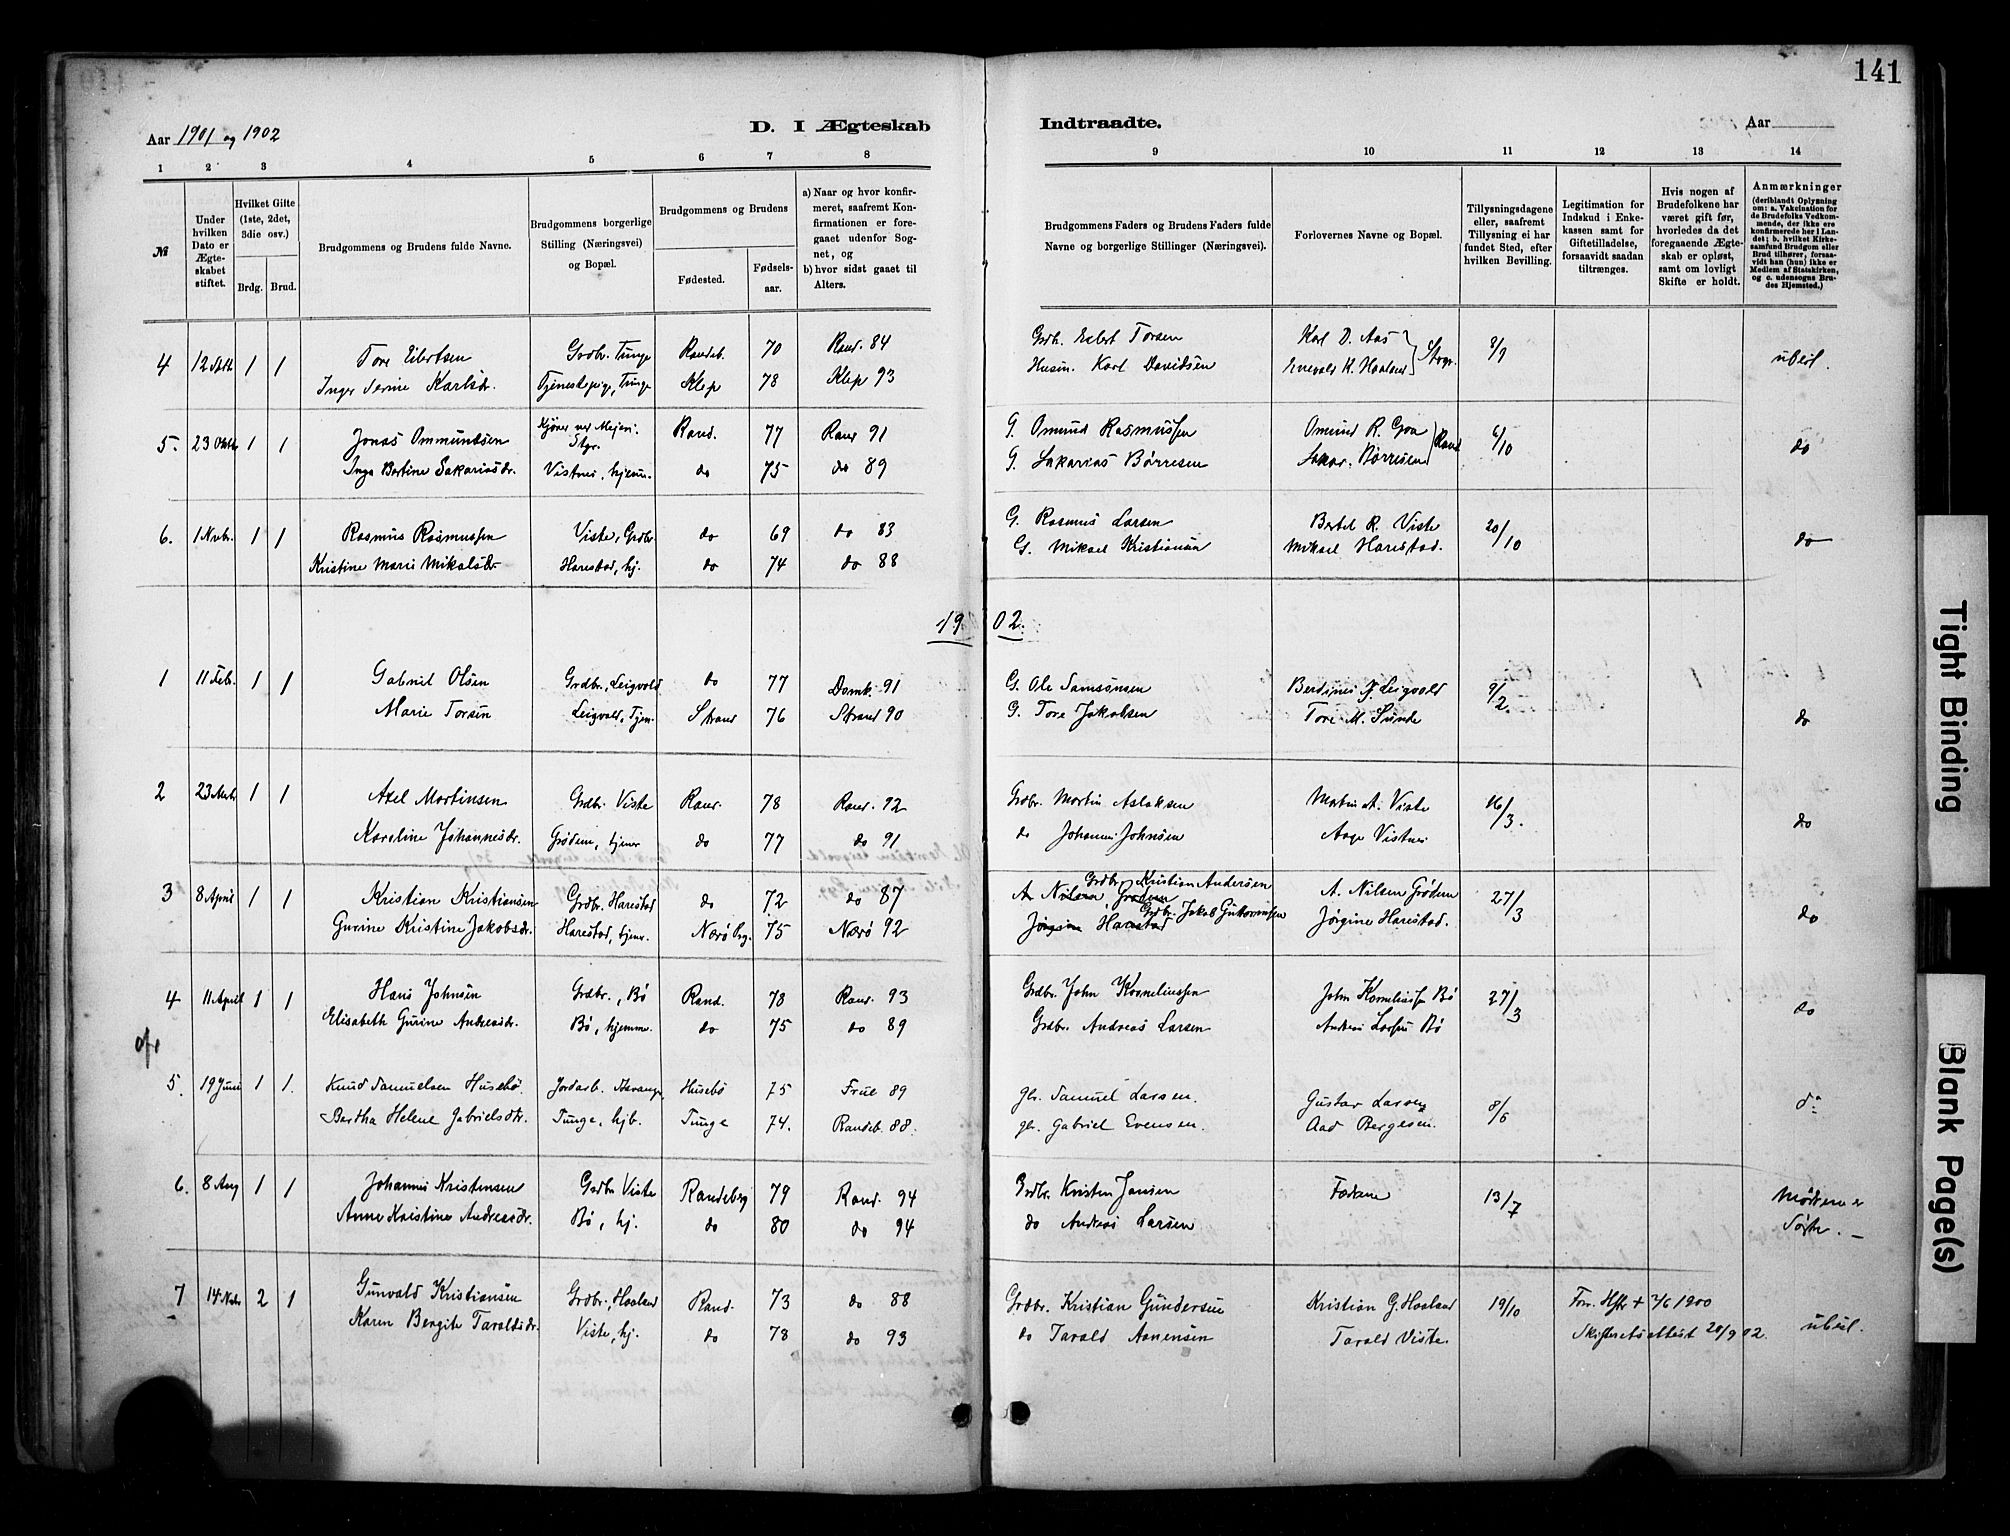 141
Aar 1901 og 1902
D. I Ægteskab Indtraadte.
Aar
1 2 3 4 5 6 7 8 9 10 11 12 13 14
№
Under hvilken Dato er Ægteskabet stiftet.
Hvilket Gifte (1ste, 2det, 3die osv.)
Brdg. Brud.
Brudgommens og Brudens fulde Navne.
Brudgommens borgerlige Stilling (Næringsvei) og Bopæl.
Brudgommens og Brudens
Fødested.
Fødselsaar.
a) Naar og hvor konfirmeret, saafremt Konfirmationen er foregaaet udenfor Sognet, og
b) hvor sidst gaaet til Alters.
Brudgommens Faders og Brudens Faders fulde Navne og borgerlige Stillinger (Næringsvei).
Forlovernes Navne og Bopæl.
Tillysningsdagene eller, saafremt Tillysning ei har fundet Sted, efter hvilken Bevilling.
Legitimation for Indskud i Enkekassen samt for Giftetilladelse, forsaavidt saadan tiltrænges.
Hvis nogen af Brudefolkene har været gift før, hvorledes da det foregaaende Ægteskab er opløst, samt om lovligt Skifte er holdt.
Anmærkninger (deriblandt Oplysning om: a. Vakcination for de Brudefolks Vedkommende, der ikke ere konfirmerede her i Landet; b. hvilket Kirkesamfund Brudgom eller Brud tilhører, forsaavidt han (hun) ikke er Medlem af Statskirken, og c. udensogns Brudes Hjemsted.)
4 1 1 Tore Eilertsen Grdbr. Tunge Randeb. 70 Rand. 84 Grdb. Eilert Torsen Karl D. Aas 8/9 ubesl.
Inger Serine Karlsdr. Tjenestepige, Tunge Klep 78 Klep 93 Husm. Karl Davidsen K. Haaland
5. 23 Oktbr 1 1 Jonas Ommundsen Rand. 77 Rand 91 G. Omund Rasmussen Omund R. Goa Rand 6/10 do
Inga Bertine Sakariasdr. Vistnes, hjem. do 75 do 89 G. Sakarias Børresen Sakar. Børresen
6. 1 Nvbr. 1 1 Rasmus Rasmussen Viste, Grdbr. do 69 do 83 G. Rasmus Larsen Bertel R. Viste 20/10 do
Kristine Marie Mikalsdr Harestad, hj. do 74 do 88 G. Mikael Kristiansen Mikael Harestad.
1902.
1 11 Feb. 1 1 Gabriel Olsen Grdbr., Leigvold do 77 Domk. 91 G. Ole Samsonsen Berdines J. Leigvold 9/2. do
Marie Torsen Leigvold, Tjen. Strand 76 Strand 90 G. Tore Jakobsen Tore M. Sunde
2 23 1 1 Axel Martinsen Grdbr. Viste Rand. 78 Rand. 92 Grdbr. Martin Aslaksen Martin A. Viste 16/3. do
Karoline Johannesdr. Grødem, hjem 77 do 91 do Johannes Johnsen Aage Vistnes
3 8 April 1 1 Kristian Kristiansen Grdbr. Harestad do 72 do 87 A. Nilsen, Grødem Grdbr. Kristian Andersen A. Nilsen Grødem 27/3 do
Gurine Kristine Jakobsdr. Harestad, hjem. Nærø 75 Nærø 92 Jørgine Harestad Grdbr. Jakob Guttormsen Jørgine Harestad.
4 11 April 1 1 Hans Johnsen Grdbr., Bø Rand. 78 Rand. 93 Grdbr. John Korneliussen John Korneliussen Bø 27/3 do
Elisabeth Gurine Andreasdr. Bø, hjemme. do 75 do 89 Grdbr. Andreas Larsen Andreas Larsen Bø
5. 19 Juni 1 1. Knud Samuelsen Husebø. Jordarb. Husebø 75 Frue 89 gbr. Samuel Larsen. Gustav Larsen 8/6 do
Bertha Helene Gabrielsdtr. Tunge, hjb. Tunge 74. Randeb. 88. gbr. Gabriel Evensen. Aad Bergesen.
6. 8 Aug 1 1 Johannes Kristensen Grdbr Viste Randeberg 79 Rand. 94 Grdbr. Kristen Jansen Fædrene 13/7 Mødrene er
Anne Kristine Andreasdr. Bø, hj. do 80 do 94 do Andreas Larsen Søstr.
7 14 Nvbr 2 1 Gunvald Kristiansen Grdbr., Haaland Rand. 73 do 88 Grdbr. Kristian Gundersen Kristian G. Haaland 19/10 1900 ubesl.
Karen Bergite Taraldsdr. Viste, hj. do 78 do 93 do Tarald Aanensen Tarald Viste. Skifteretsattest 20/9 02.
Tight Binding
Blank Page(s)